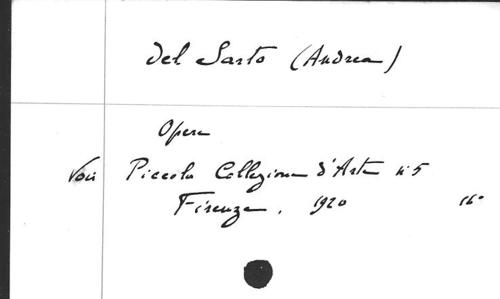 Del Sarto (Andrea)
Opere
Voir Piccola Collezione d'Arte n° 5
Firenze, 1920 16°